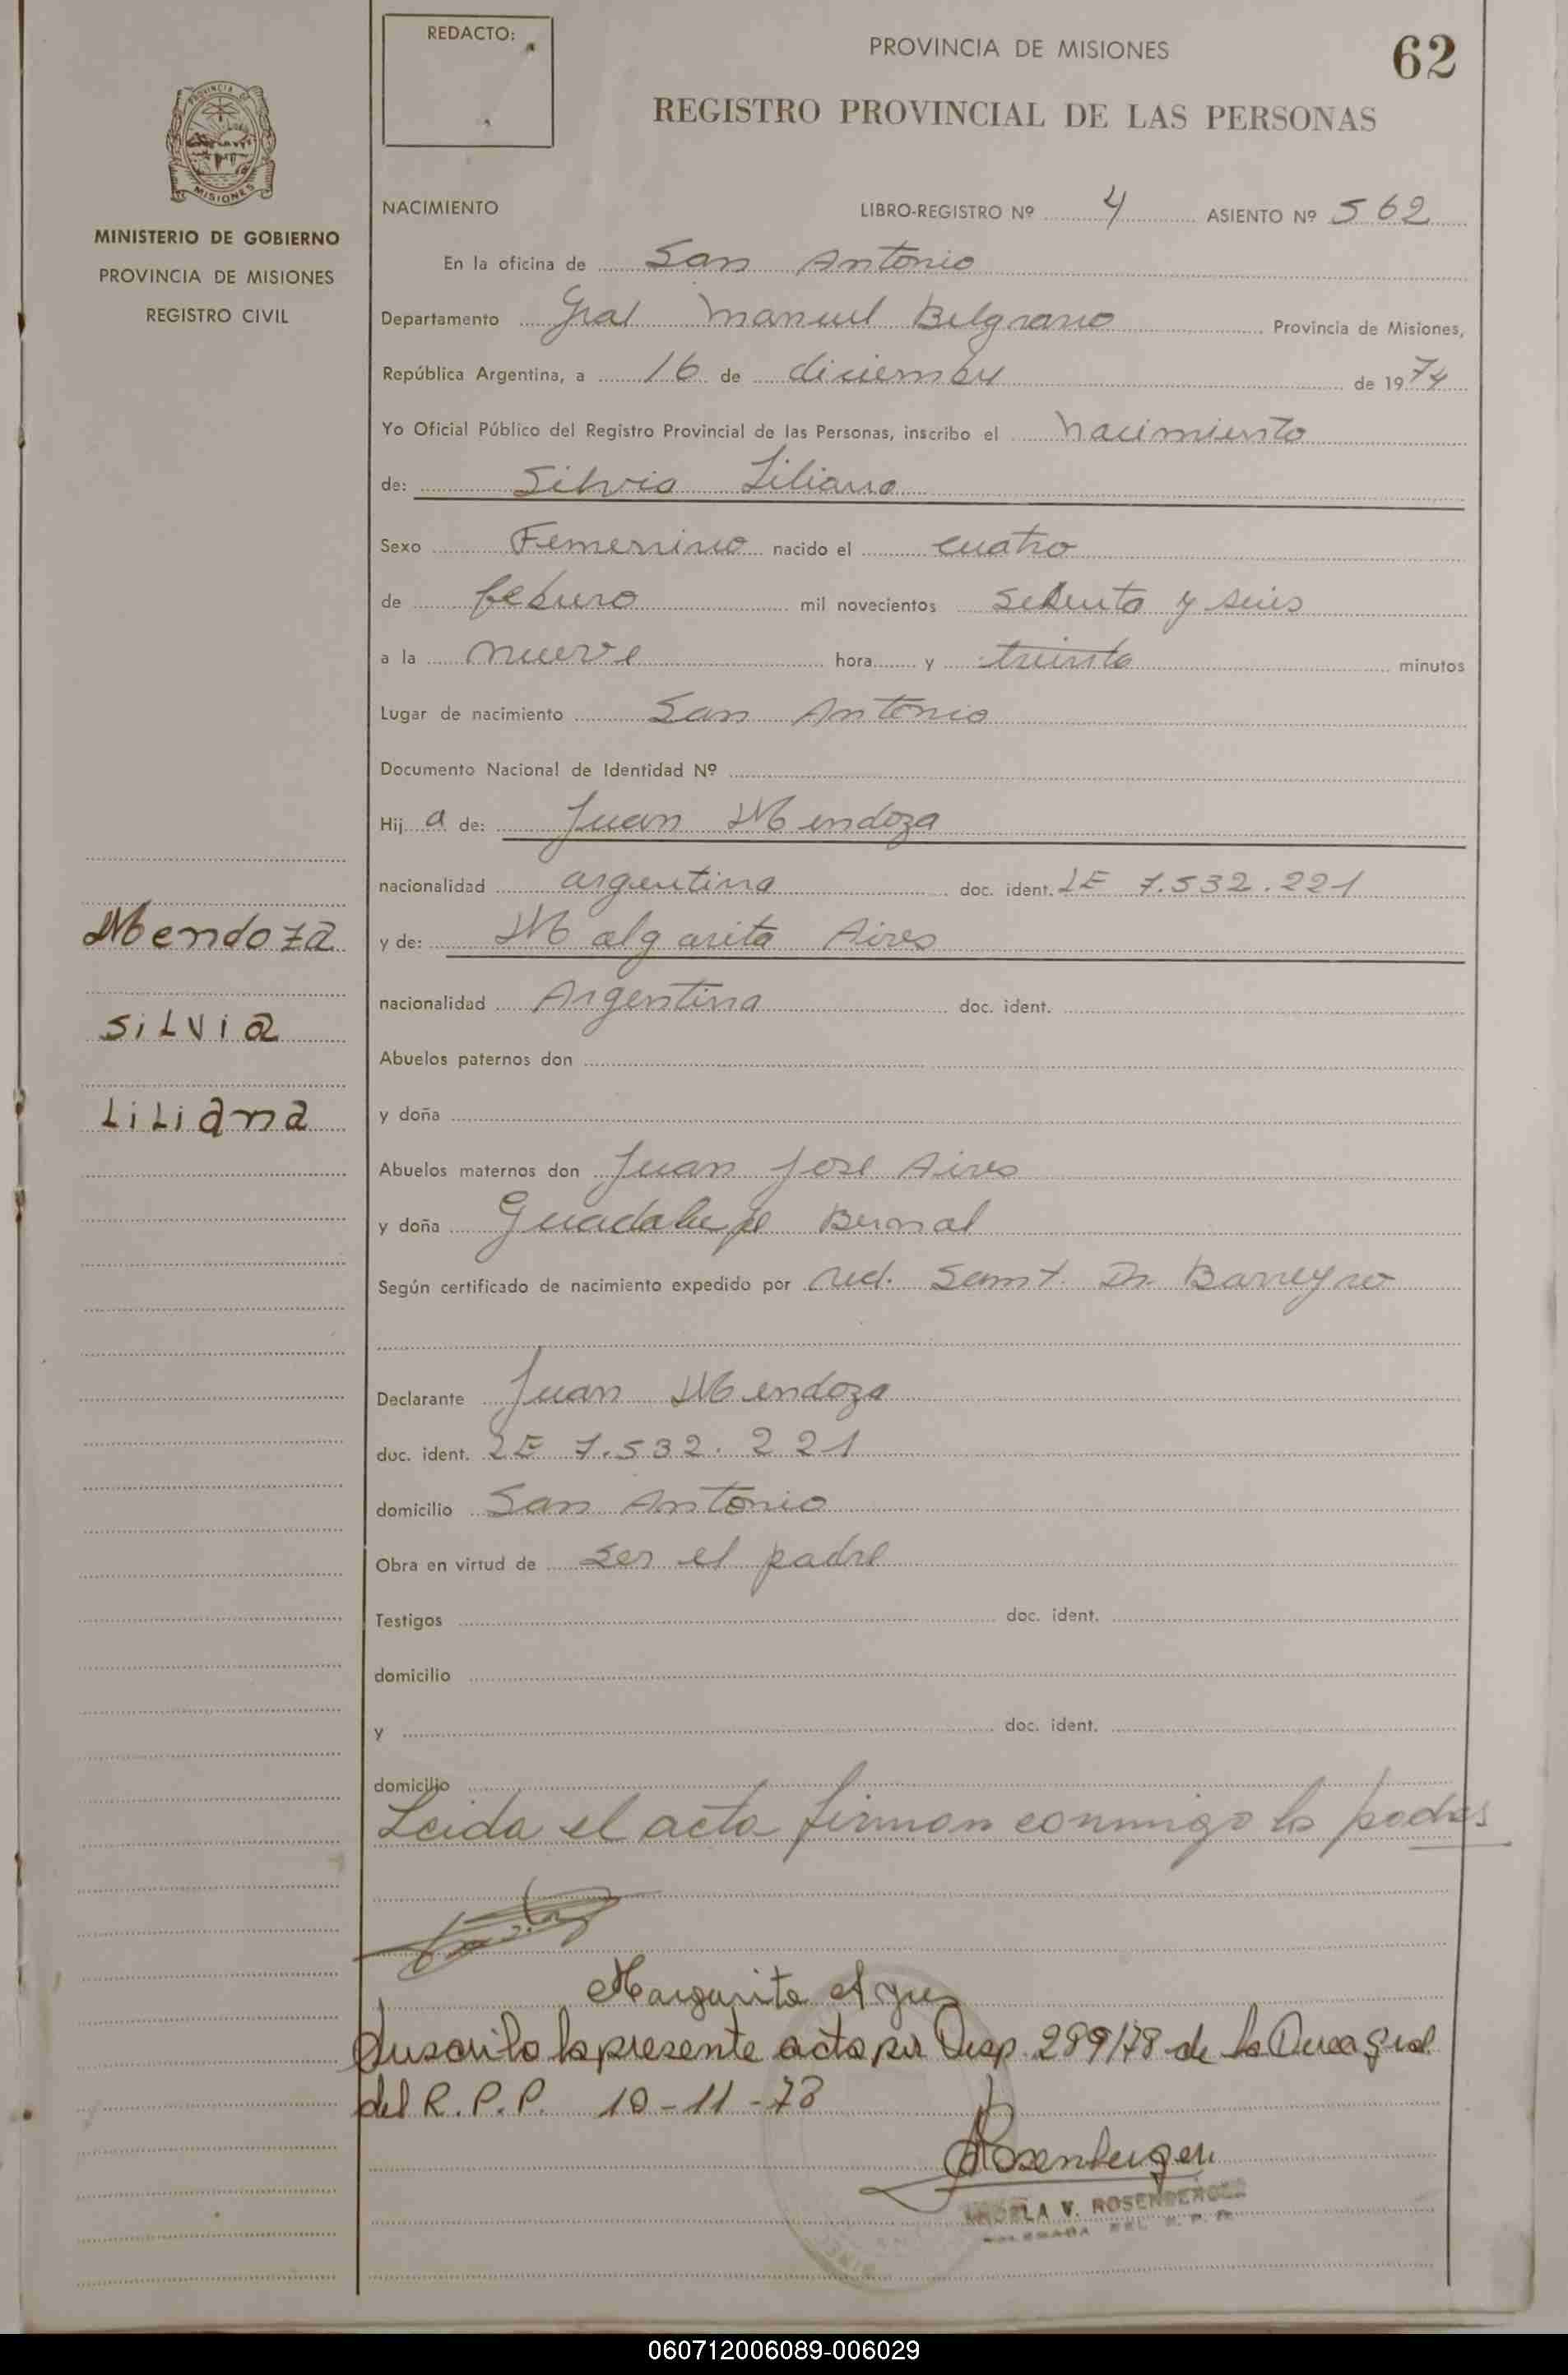 REDACTO:
PROVINCIA DE MISIONES
62
REGISTRO PROVINCIAL DE LAS PERSONAS
PROVINCIA DE
MISIONES
MINISTERIO DE GOBIERNO
PROVINCIA DE MISIONES
REGISTRO CIVIL
NACIMIENTO LIBRO-REGISTRO Nº 4 ASIENTO Nº 562
En la oficina de San Antonio
Departamento Gral Manuel Belgrano Provincia de Misiones,
República Argentina, a 16 de diciembre de 1974
Yo Oficial Público del Registro Provincial de las Personas, inscribo el nacimiento
de: Silvia Liliana
Sexo Femenino nacido el cuatro
de febrero mil novecientos setenta y seis
a la nueve hora y treinta minutos
Lugar de nacimiento San Antonio
Documento Nacional de Identidad Nº
Hij a de: Juan Mendoza
nacionalidad argentina doc. ident. LE 7.532.221
Mendoza
y de: Malgarita Aires
nacionalidad Argentina doc. ident.
SiLViA
Abuelos paternos don
LiLiana
y doña
Abuelos maternos don Juan Jose Aires
y doña Guadalupe Bernal
Según certificado de nacimiento expedido por Dr. Barreyro
Declarante Juan Mendoza
doc. ident. LE 7.532.221
domicilio San Antonio
Obra en virtud de ser el padre
Testigos doc. ident.
domicilio
y doc. ident.
domicilio
Leida el acta firman conmigo los padres
Margarita
Suscrito la presente acta por Disp. 289/78 de la Direc Gral.
del R.P.P. 10-11-78
Rosenberger
ANGELA V. ROSENBERGER
DELEGADA DEL R. P. P.
060712006089-006029